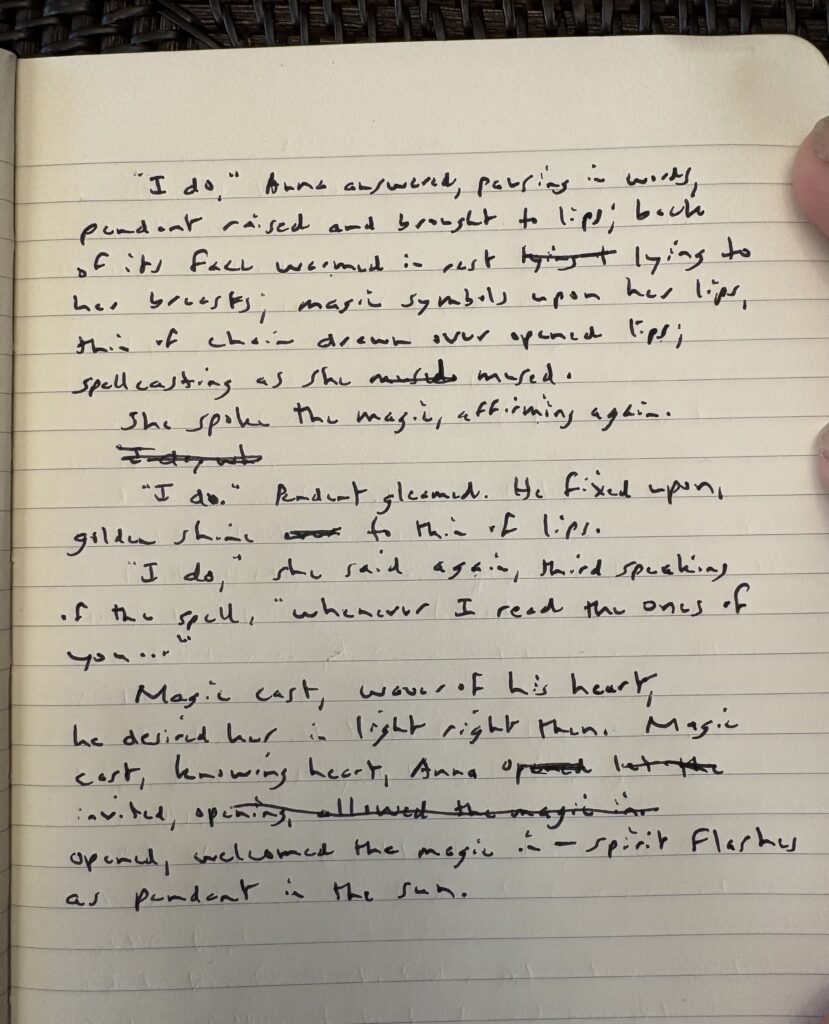 "I do," Anna answered, pausing in words,
pendant raised and brought to lips; back
of its face warmed in rest lying t lying to
her breasts; magic symbols upon her lips,
thin of chain drawn over opened lips;
spellcasting as she mused.
She spoke the magic, affirming again.
"I do." Pendant gleamed. He fixed upon,
golden shine to thin of lips.
"I do," she said again, third speaking
of the spell, "whenever I read the ones of
you..."
Magic cast, waver of his heart,
he desired her in light right then. Magic
cast, knowing heart, Anna opened let the
invited, opening, allowed the magic in.
opened, welcomed the magic in — spirit flashes
as pendant in the sun.